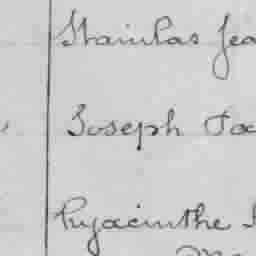 Stanislas Jea
Joseph Jac
Hyacinthe